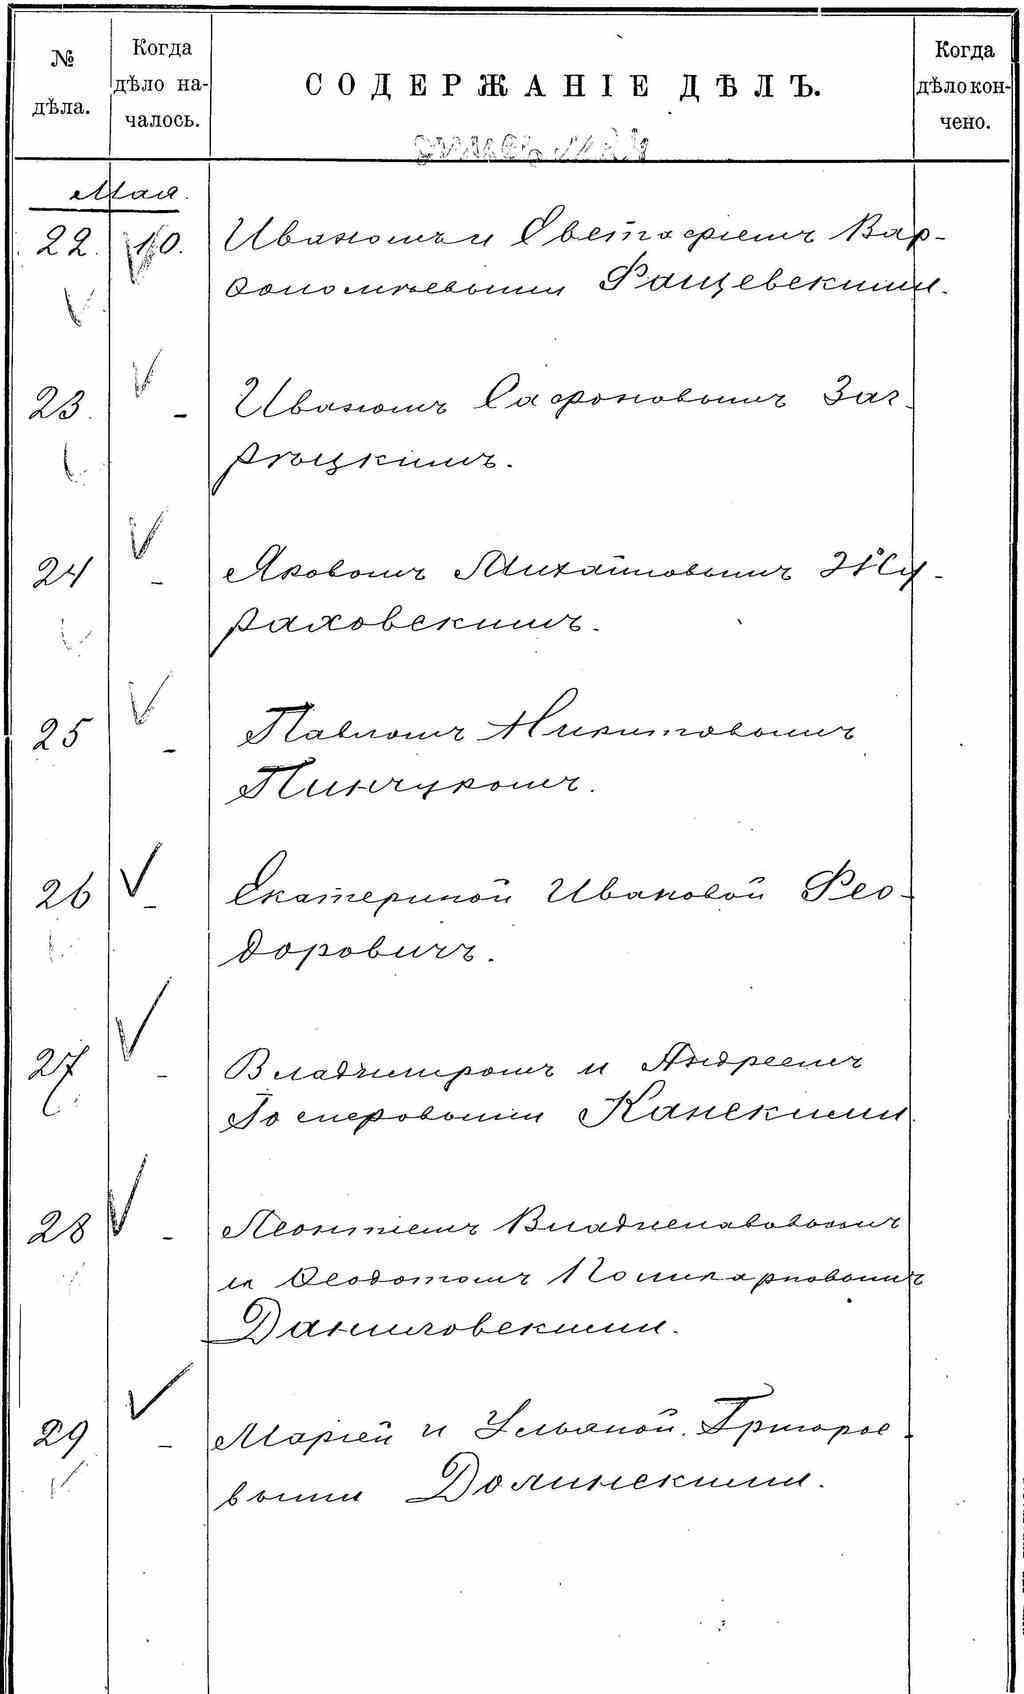 № дѣла.
Когда дѣло на-чалось.
СОДЕРЖАНІЕ ДѢЛЪ.
Когда дѣло кон-чено.
Мая.
22. 10. Иваномъ и Евстафіемъ Вар-
ѳоломѣевыми Фащевскими.
23. - Иваномъ Сафроновымъ Заг-
рѣцкимъ.
24 - Яковомъ Михайловымъ Жу-
раховскимъ.
25 - Павломъ Никитовымъ
Пинчукомъ.
26 - Екатериной Ивановой Фео-
доровичъ.
27 - Владиміромъ и Андреемъ
Канскими
28 - Леонтіемъ Владиславовымъ
и Ѳеодотомъ Поликарповымъ
Даниловскими.
29 - Маріей и Ульяной Григорье-
выми Долинскими.